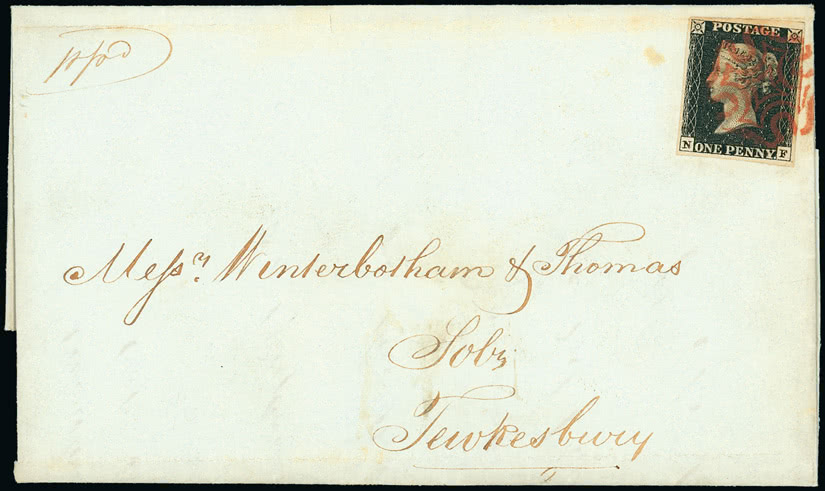 pp/d
POSTAGE
N ONE PENNY F
Messrs. Winterbotham & Thomas
Solrs
Tewkesbury